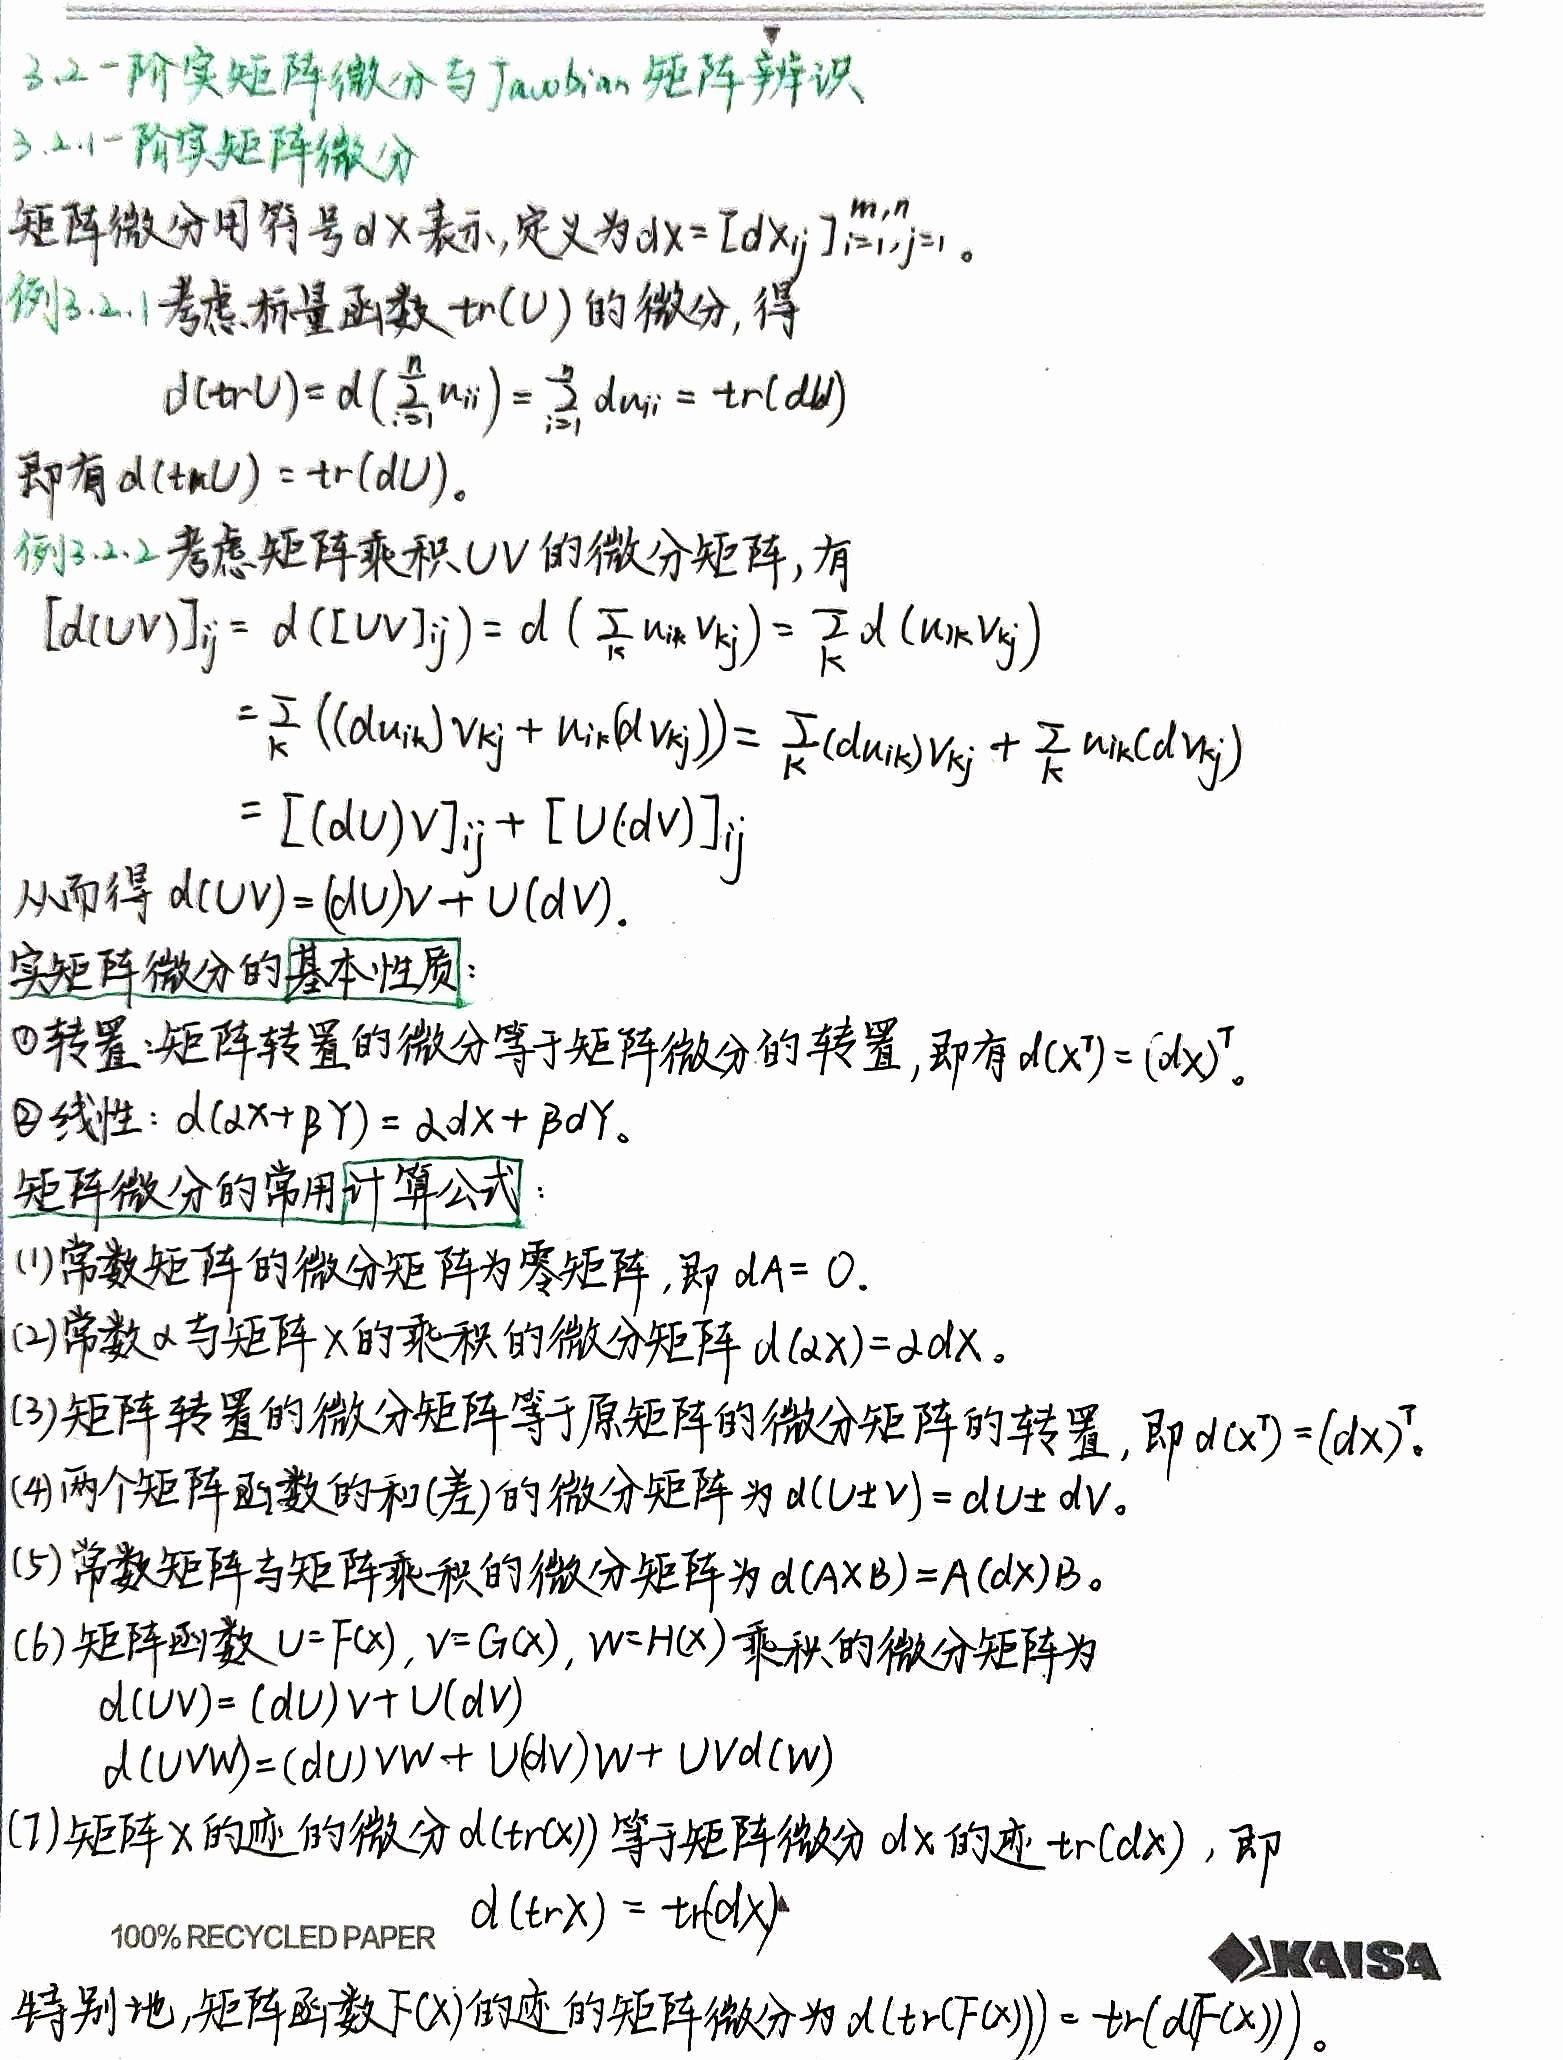 3.2 一阶实矩阵微分与Jacobian 矩阵辨识
3.2.1 一阶实矩阵微分
矩阵微分用符号dX表示,定义为dX=[dXij]_{i=1,j=1}^{m,n}。
例3.2.1 考虑标量函数 tr(U) 的微分,得
d(trU)=d(∑_{i=1}^{n} uii)=∑_{i=1}^{n} duii = tr(dU)
即有 d(trU) = tr(dU)。
例3.2.2 考虑矩阵乘积UV的微分矩阵,有
[d(UV)]ij = d([UV]ij) = d(∑_k uik vkj) = ∑_k d(uik vkj)
= ∑_k ((duik)vkj + uik(dvkj)) = ∑_k (duik)vkj + ∑_k uik(dvkj)
= [(dU)V]ij + [U(dV)]ij
从而得 d(UV)=(dU)V+U(dV).
实矩阵微分的基本性质:
①转置:矩阵转置的微分等于矩阵微分的转置,即有d(X^T)=(dX)^T。
②线性: d(αX+βY)=αdX+βdY。
矩阵微分的常用计算公式:
(1)常数矩阵的微分矩阵为零矩阵,即 dA=0.
(2)常数α与矩阵X的乘积的微分矩阵 d(αX)=αdX。
(3)矩阵转置的微分矩阵等于原矩阵的微分矩阵的转置,即d(X^T)=(dX)^T。
(4)两个矩阵函数的和(差)的微分矩阵为d(U±V)=dU±dV。
(5)常数矩阵与矩阵乘积的微分矩阵为d(AXB)=A(dX)B。
(6)矩阵函数 U=F(X), V=G(X), W=H(X) 乘积的微分矩阵为
d(UV)=(dU)V+U(dV)
d(UVW)=(dU)VW+U(dV)W+UVd(W)
(7)矩阵X的迹的微分d(tr(X))等于矩阵微分 dX的迹tr(dX),即
d(trX) = tr(dX)
100% RECYCLED PAPER
KAISA
特别地,矩阵函数F(X)的迹的矩阵微分为d(tr(F(X)))=tr(d(F(X)))。